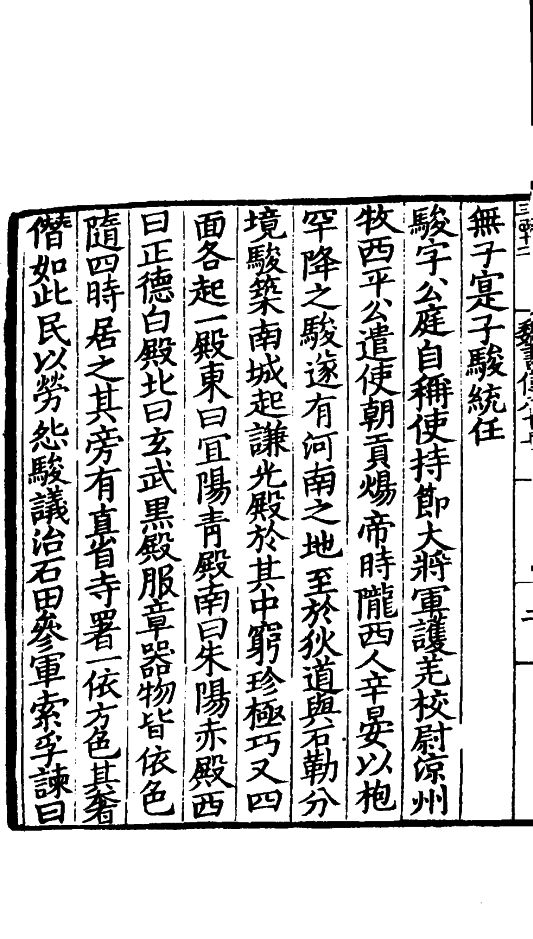 無子寔子駿統任
駿字公庭自稱使持節大將軍護羌校尉涼州
牧西平公遣使朝貢煬帝時隴西人辛晏以枹
罕降之駿遂有河南之地至於狄道與石勒分
境駿築南城起謙光殿於其中窮珍極巧又四
面各起一殿東曰宜陽青殿南曰朱陽赤殿西
曰正德白殿北曰玄武黑殿服章器物皆依色
隨四時居之其旁有直省寺署一依方色其奢
僭如此民以勞怨駿議治石田參軍索孚諫曰